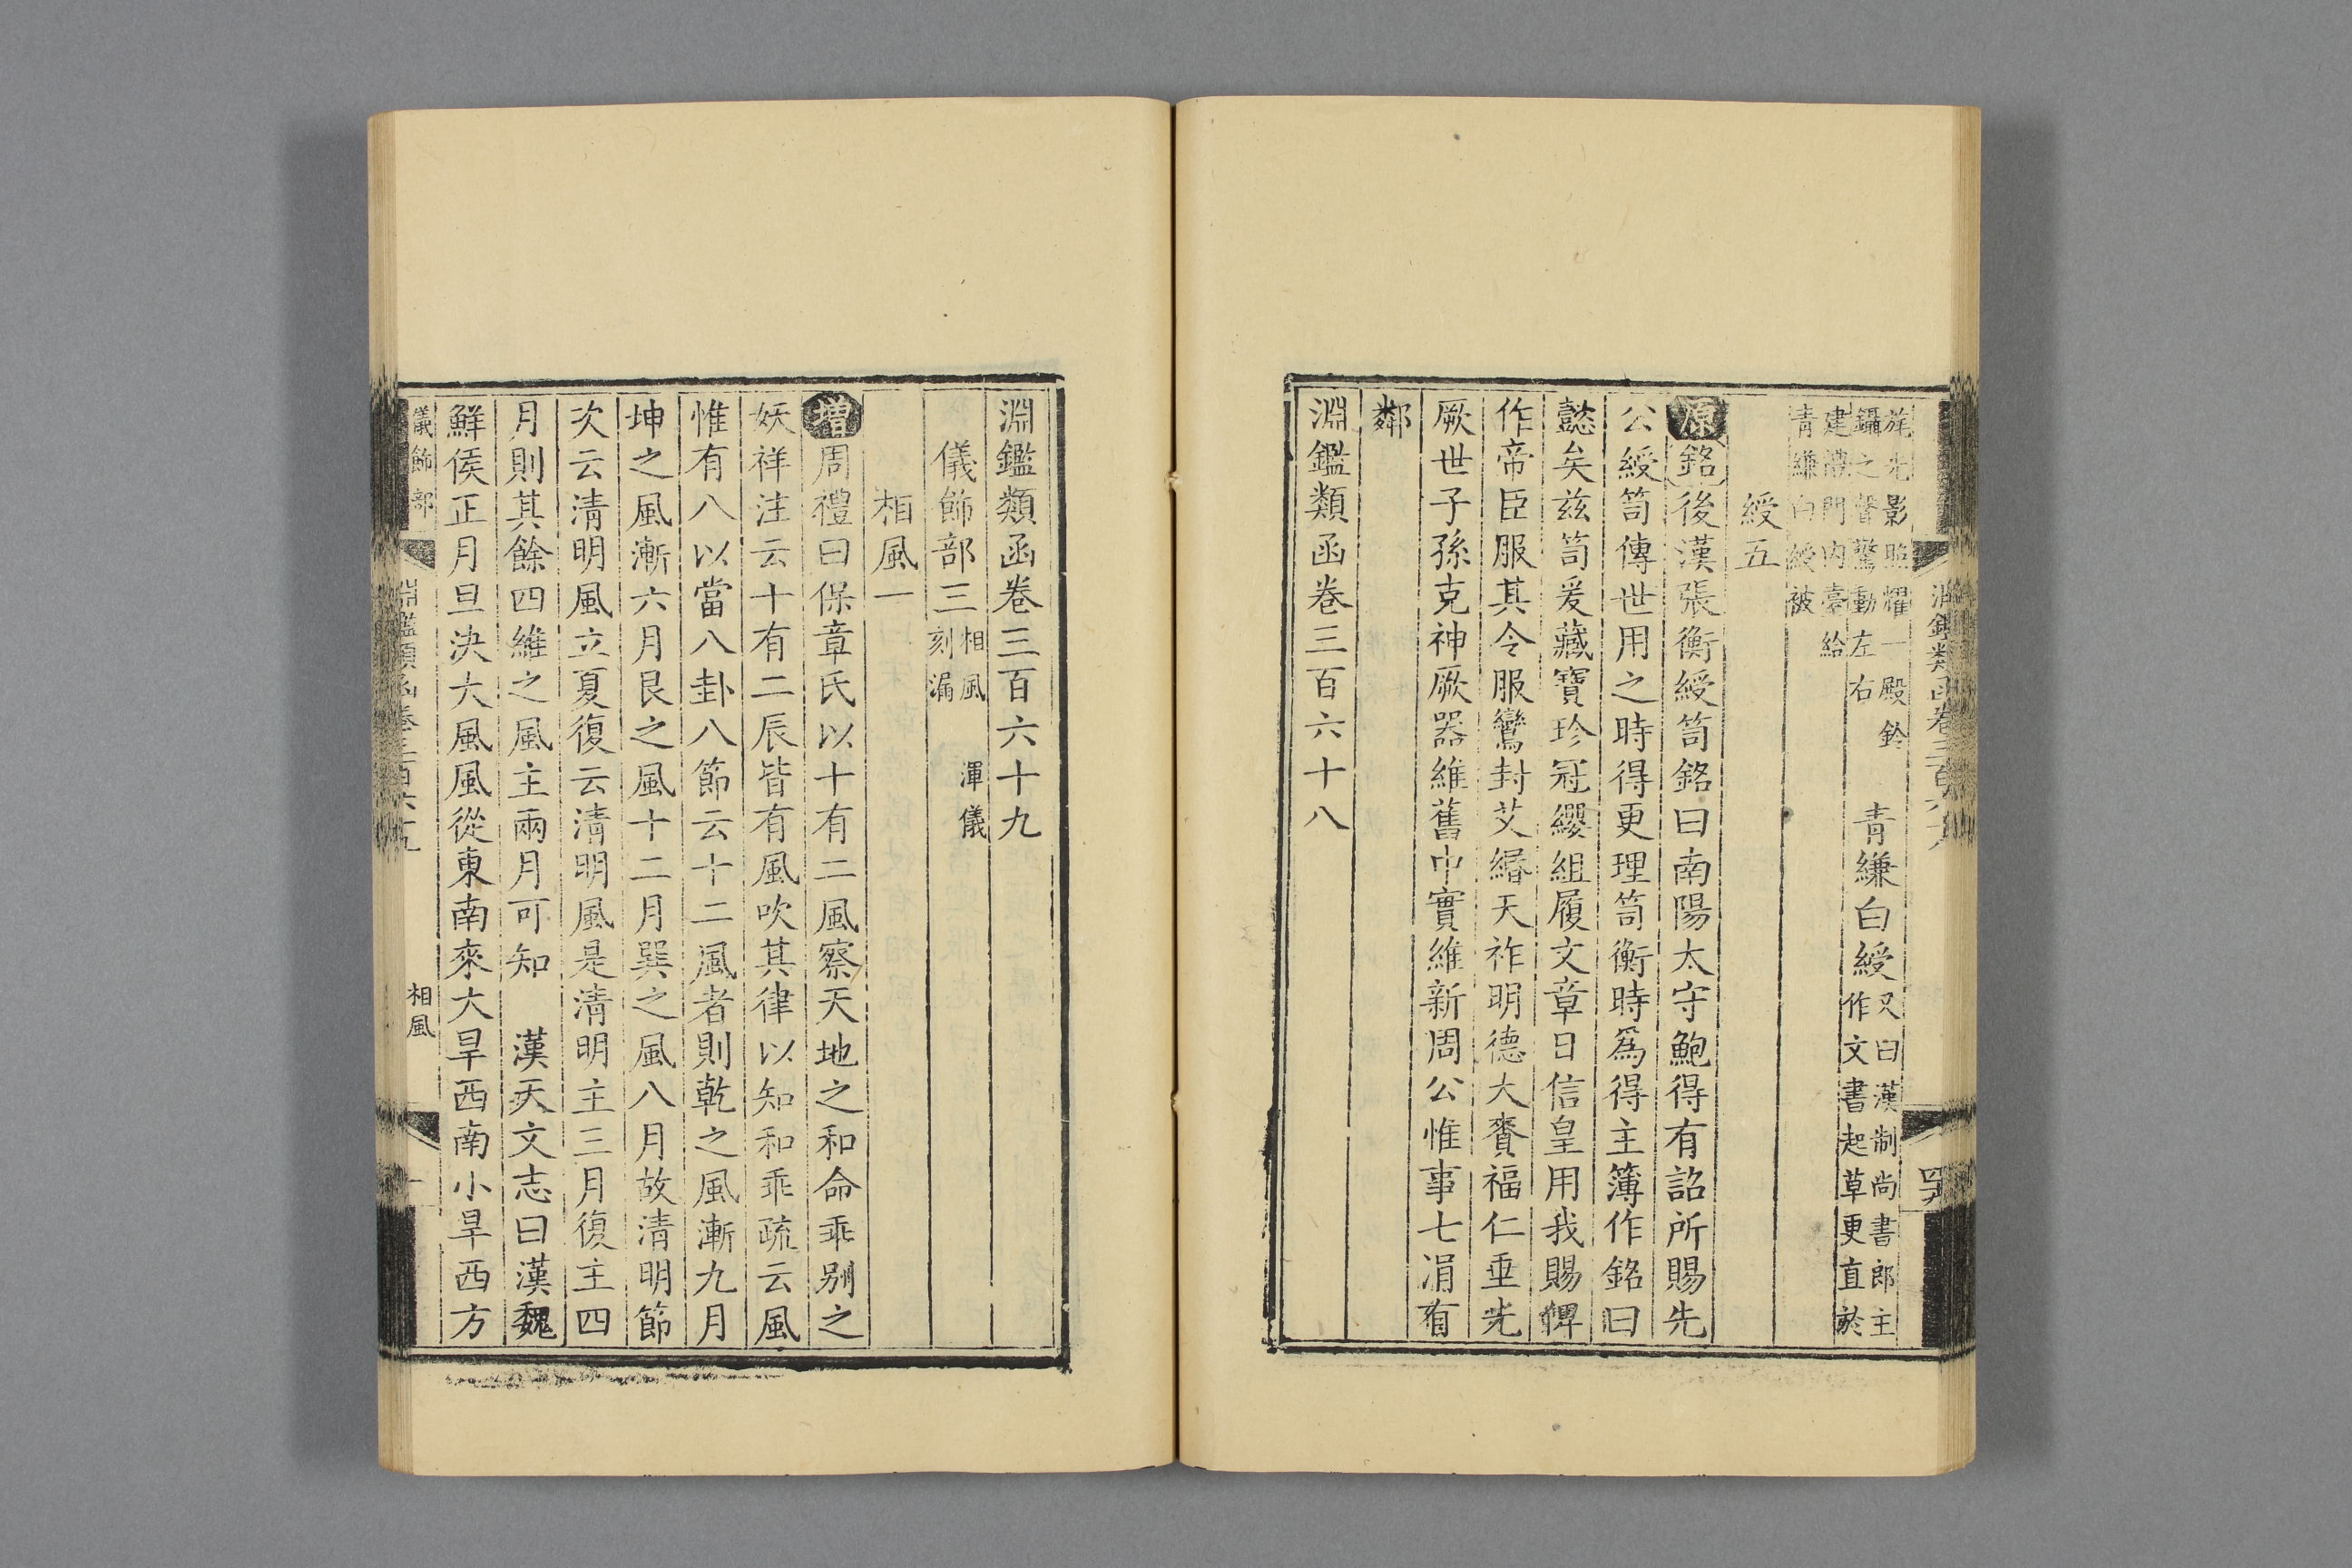 旄光影昭耀一殿鈴
鑷之聲驚動左右
青縑白綬
又曰漢制尚書郎主
作文書起草更直於
建禮門內臺給
青縑白綬被
綬五
原銘後漢張衡綬笥銘曰南陽太守鮑得有詔所賜先
公綬笥傳世用之時得更理笥衡時爲得主簿作銘曰
懿矣兹笥爰藏寶珍冠纓組履文章日信皇用我賜俾
作帝臣服其令服鸞封艾緡天祚明德大賚福仁垂光
厥世子孫克神厥器維舊中實維新周公惟事七涓有
鄰
淵鑑類函卷三百六十八
淵鑑類函卷三百六十九
儀飾部三
相風 渾儀
刻漏
相風一
増周禮曰保章氏以十有二風察天地之和命乖别之
妖祥注云十有二辰皆有風吹其律以知和乖疏云風
惟有八以當八卦八節云十二風者則乾之風漸九月
坤之風漸六月艮之風十二月巽之風八月故清明節
次云清明風立夏復云清明風是清明主三月復主四
月則其餘四維之風主兩月可知 漢天文志曰漢魏
鮮侯正月旦決大風風從東南來大旱西南小旱西方
儀飾部
相風